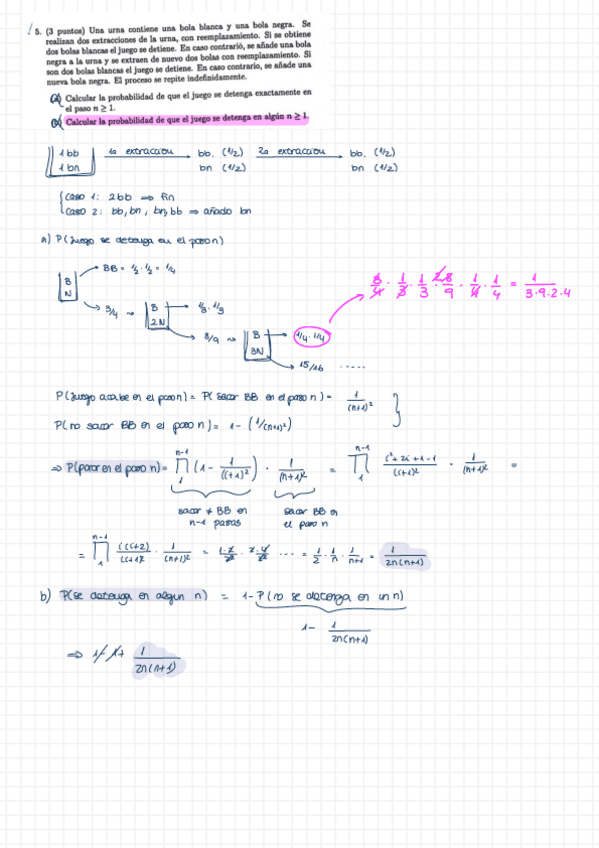 5. (3 puntos) Una urna contiene una bola blanca y una bola negra. Se
realizan dos extracciones de la urna, con reemplazamiento. Si se obtiene
dos bolas blancas el juego se detiene. En caso contrario, se añade una bola
negra a la urna y se extraen de nuevo dos bolas con reemplazamiento. Si
son dos bolas blancas el juego se detiene. En caso contrario, se añade una
nueva bola negra. El proceso se repite indefinidamente.
(a) Calcular la probabilidad de que el juego se detenga exactamente en
el paso n ≥ 1.
(b) Calcular la probabilidad de que el juego se detenga en algún n ≥ 1.
1 bb 1a extracción bb. (1/2) 2a extracción bb. (1/2)
1 bn bn (1/2) bn (1/2)
Caso 1: 2bb ⇒ fin
Caso 2: bb, bn, bn, bb ⇒ añado bn
a) P(juego se detenga en el paso n)
BB = 1/2 · 1/2 = 1/4
B
N
3/4 B 1/3 · 1/3
2N
8/9 B 1/4 · 1/4
3N
15/16 .....
3/4 · 1/3 · 1/3 · 8/9 · 1/4 · 1/4 = 1/3·9·2·4
P(juego acabe en el paso n) = P(sacar BB en el paso n) = 1/(n+1)²
P(no sacar BB en el paso n) = 1 - (1/(n+1)²)
⇒ P(parar en el paso n) = ∏ 1 n-1 (1 - 1/(i+1)²) · 1/(n+1)² = ∏ 1 n-1 i²+2i+1-1/(i+1)² · 1/(n+1)² =
sacar ≠ BB en sacar BB en
n-1 pasos el paso n
= ∏ 1 n-1 i(i+2)/(i+1)² · 1/(n+1)² = ... = 1/2 · 1/n · 1/n+1 = 1/2n(n+1)
b) P(se detenga en algún n) = 1 - P(no se detenga en un n)
1 - 1/2n(n+1)
⇒ 1 - 1 + 1/2n(n+1)